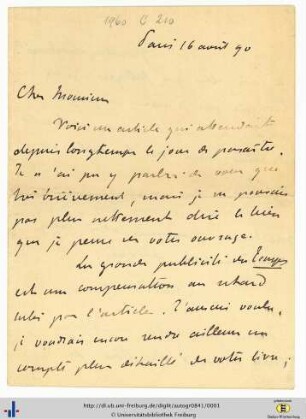 1960 C 210
Paris 16 avril 90
Cher Monsieur
Voici un article qui attendait
depuis longtemps le jour de paraître.
Je n'ai pu y parler de vous que
très brièvement, mais je ne pouvais
pas plus nettement dire le bien
que je pense de votre ouvrage.
La grande publicité du Temps
est une compensation au retard
subi par l'article. J'aurais voulu,
je voudrais encore rendre ailleurs un
compte plus détaillé de votre livre;
http://dl.ub.uni-freiburg.de/diglit/autogr0841/0001
© Universitätsbibliothek Freiburg